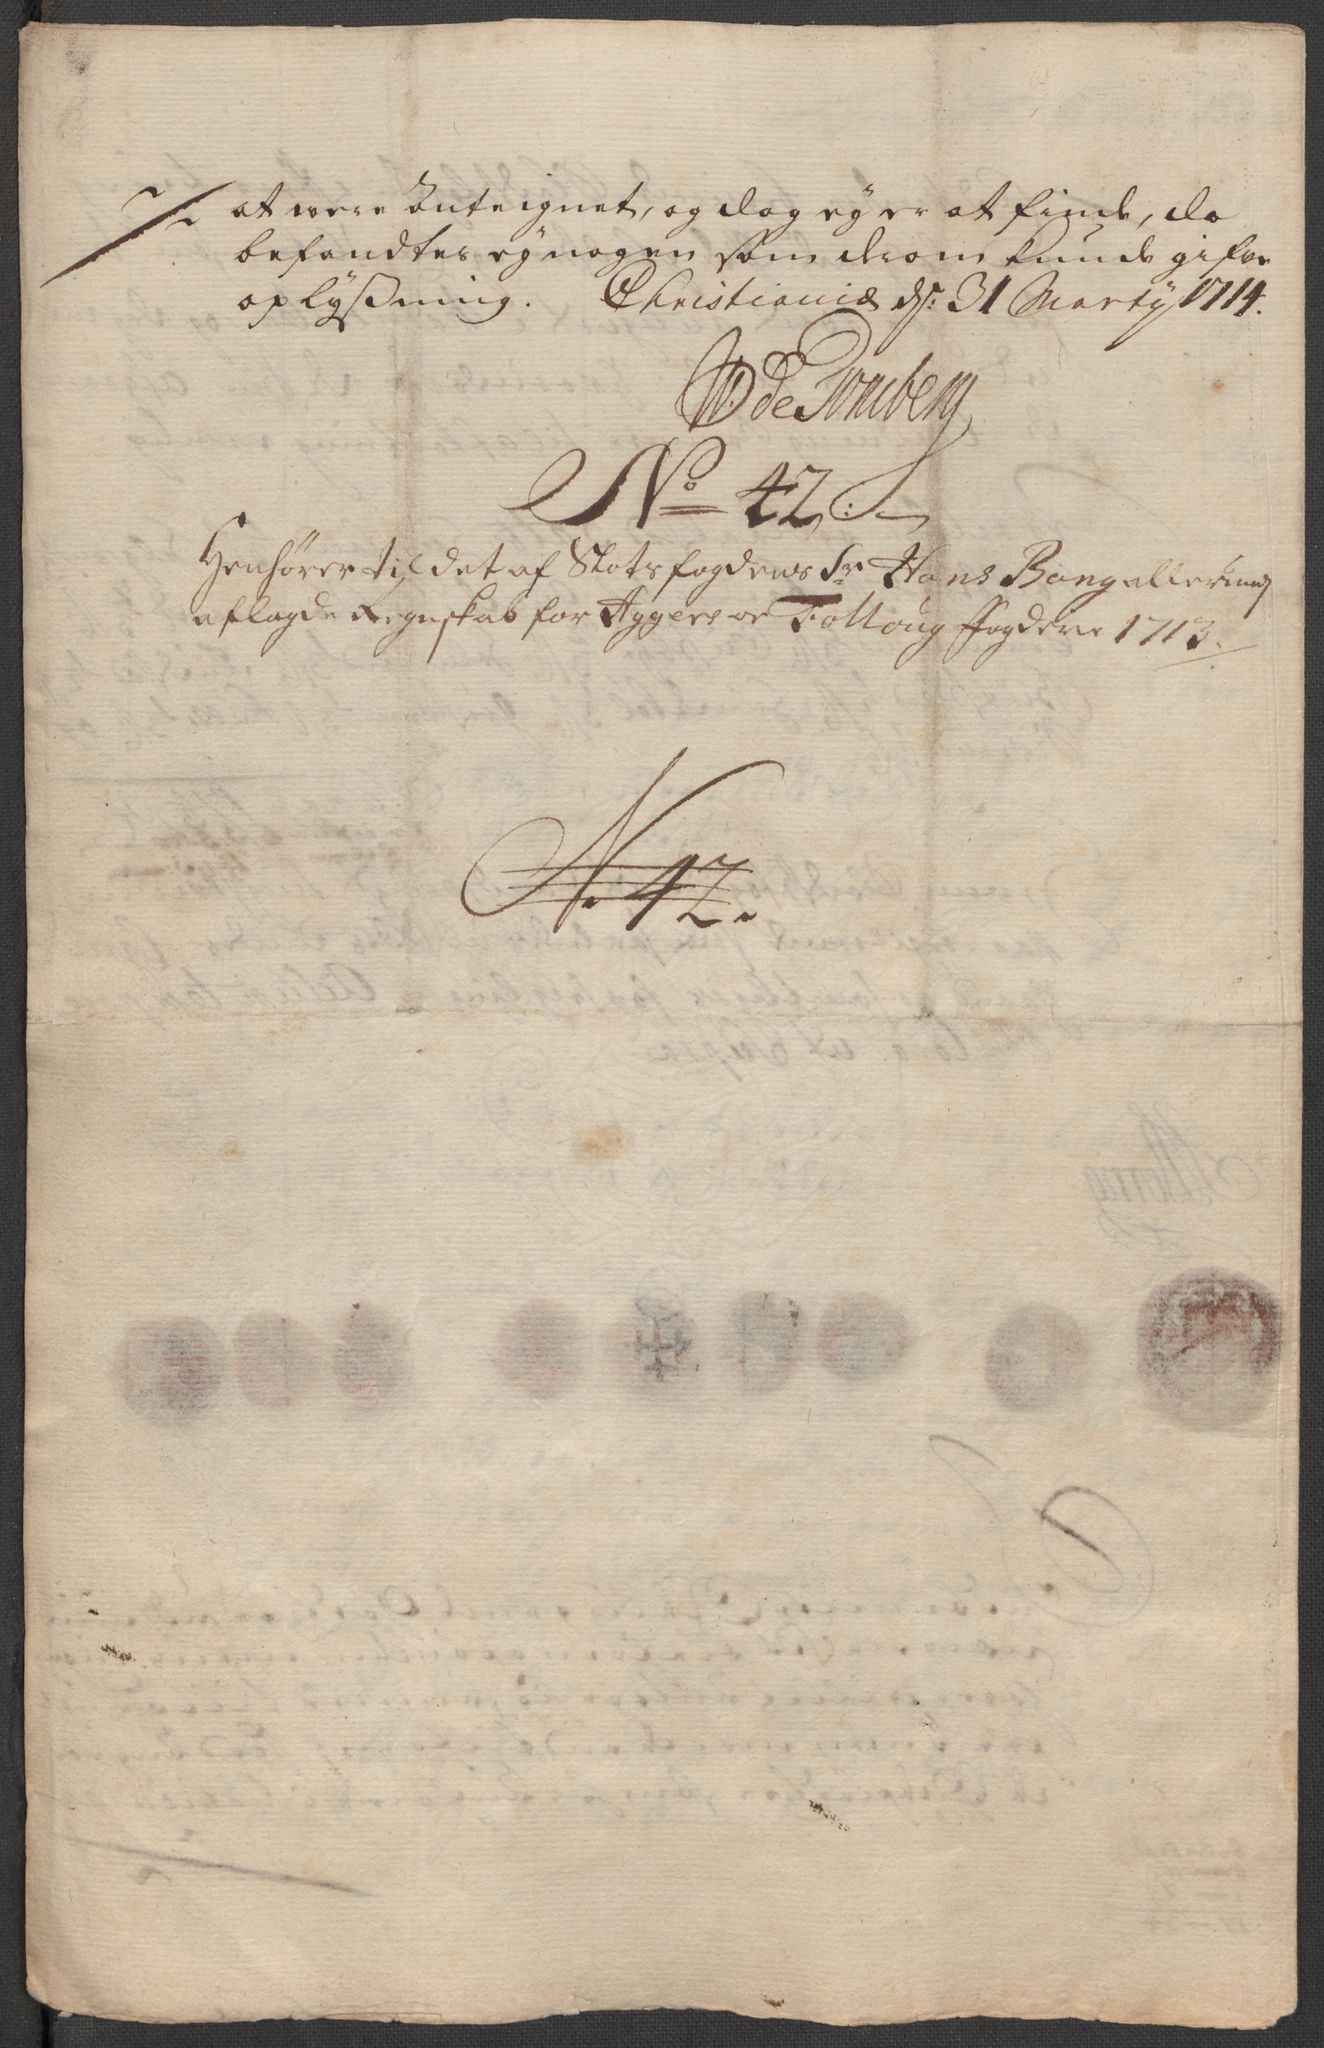 at were Anteignet, og dog ey er at finde, da
befandtes ey nogen som derom kunde gifve
oplysßning. Christianiæ dſ: 31 Marty 1714.
WDe Tonsberg
No 42
Henhører til det af Slotsfogdens Sr Hans Bang allerund
aflagde Regnskab for Aggers oe Folloug ffogderie 1713.
N. 42.